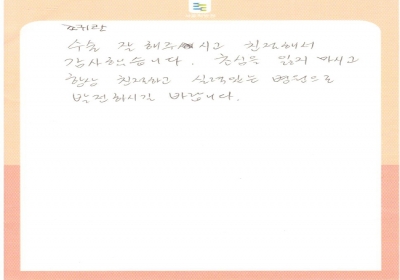 수술 잘 해주시고 친절해서
감사했습니다. 초심을 잃지 마시고
항상 친절하고 실력있는 병원으로
발전하시길 바랍니다.